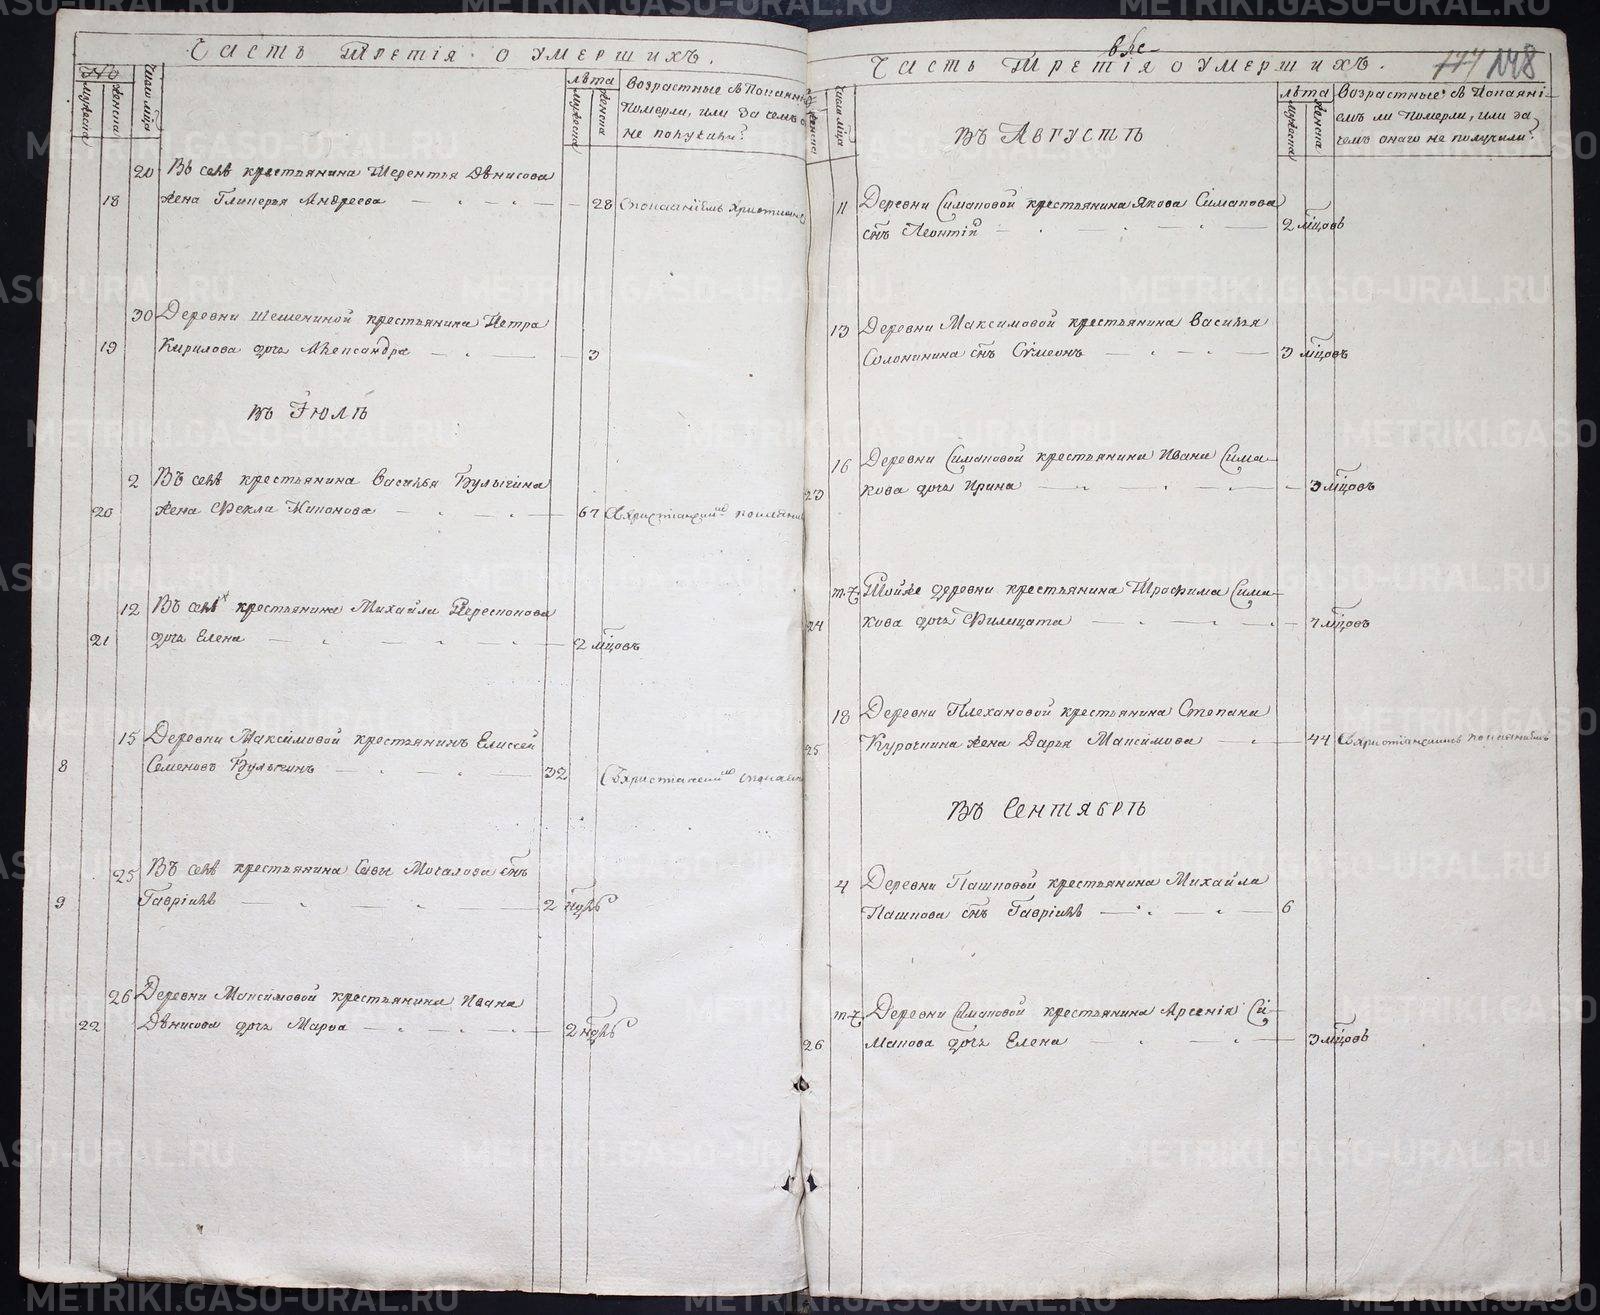 Часть Третія о умершихъ.
№
мужеска
женска
число мѣсяца
лѣта
мужеска
женска
Возрастные съ Покаяні
Померли, или за семъ о
не получили?
20 Въ селѣ крестьянина Терентья Дѣнисова
18 жена Гликерья Андреева 28 Спокаяніемъ христианс
30 Деревни Шешениной крестьянина Петра
19 Кирилова дочь Александра 3
Въ Іюлѣ
2 Въ селѣ крестьянина Василья Булыгина
20 жена Фекла Никонова 67
12 Въ селѣ крестьянина Михайла Переспонова
21 дочь Елена 2 мцовъ
15 Деревни Максимовой крестьянинъ Елисей
8 Семеновъ Булыгинъ 32
25 Въ селѣ крестьянина Савы Мочалова снъ
9 Гавріилъ 2 ндлѣ
26 Деревни Максимовой крестьянина Ивана
22 Дѣнисова дочь Марва 2 ндлѣ
Часть Третія о умершихъ. 148
женска
число мца
лѣта
мужеска
женска
Возрастные съ Покаяні-
емъ ли Померли, или за
чемъ онаго не получили?
Въ Августѣ
11 Деревни Симановой крестьянина Якова Симанова
снъ Леонтій 2 мцовъ
13 Деревни Максимовой крестьянина Василья
Солонинина снъ Сѵмеонъ 3 мцовъ
16 Деревни Симановой крестьянина Ивана Сима-
23 кова дочь Ирина 3 мцовъ
т.ч. Тойже деревни крестьянина Трофима Сима-
24 кова дочь Филицата 7 мцовъ
18 Деревни Плехановой крестьянина Степана
25 Курочкина жена Дарья Максимова 44 Съ христіанскимъ покаяніемъ
Въ Сентябрѣ
4 Деревни Пашковой крестьянина Михайла
Пашкова снъ Гавріилъ 6
т.ч. Деревни Симановой крестьянина Арсенія Си-
26 манова дочь Елена 3 мцовъ
METRIKI.GASO-URAL.RU